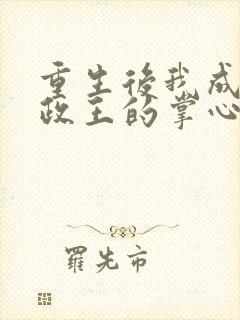 重生後我成
政王的掌心
羅先市